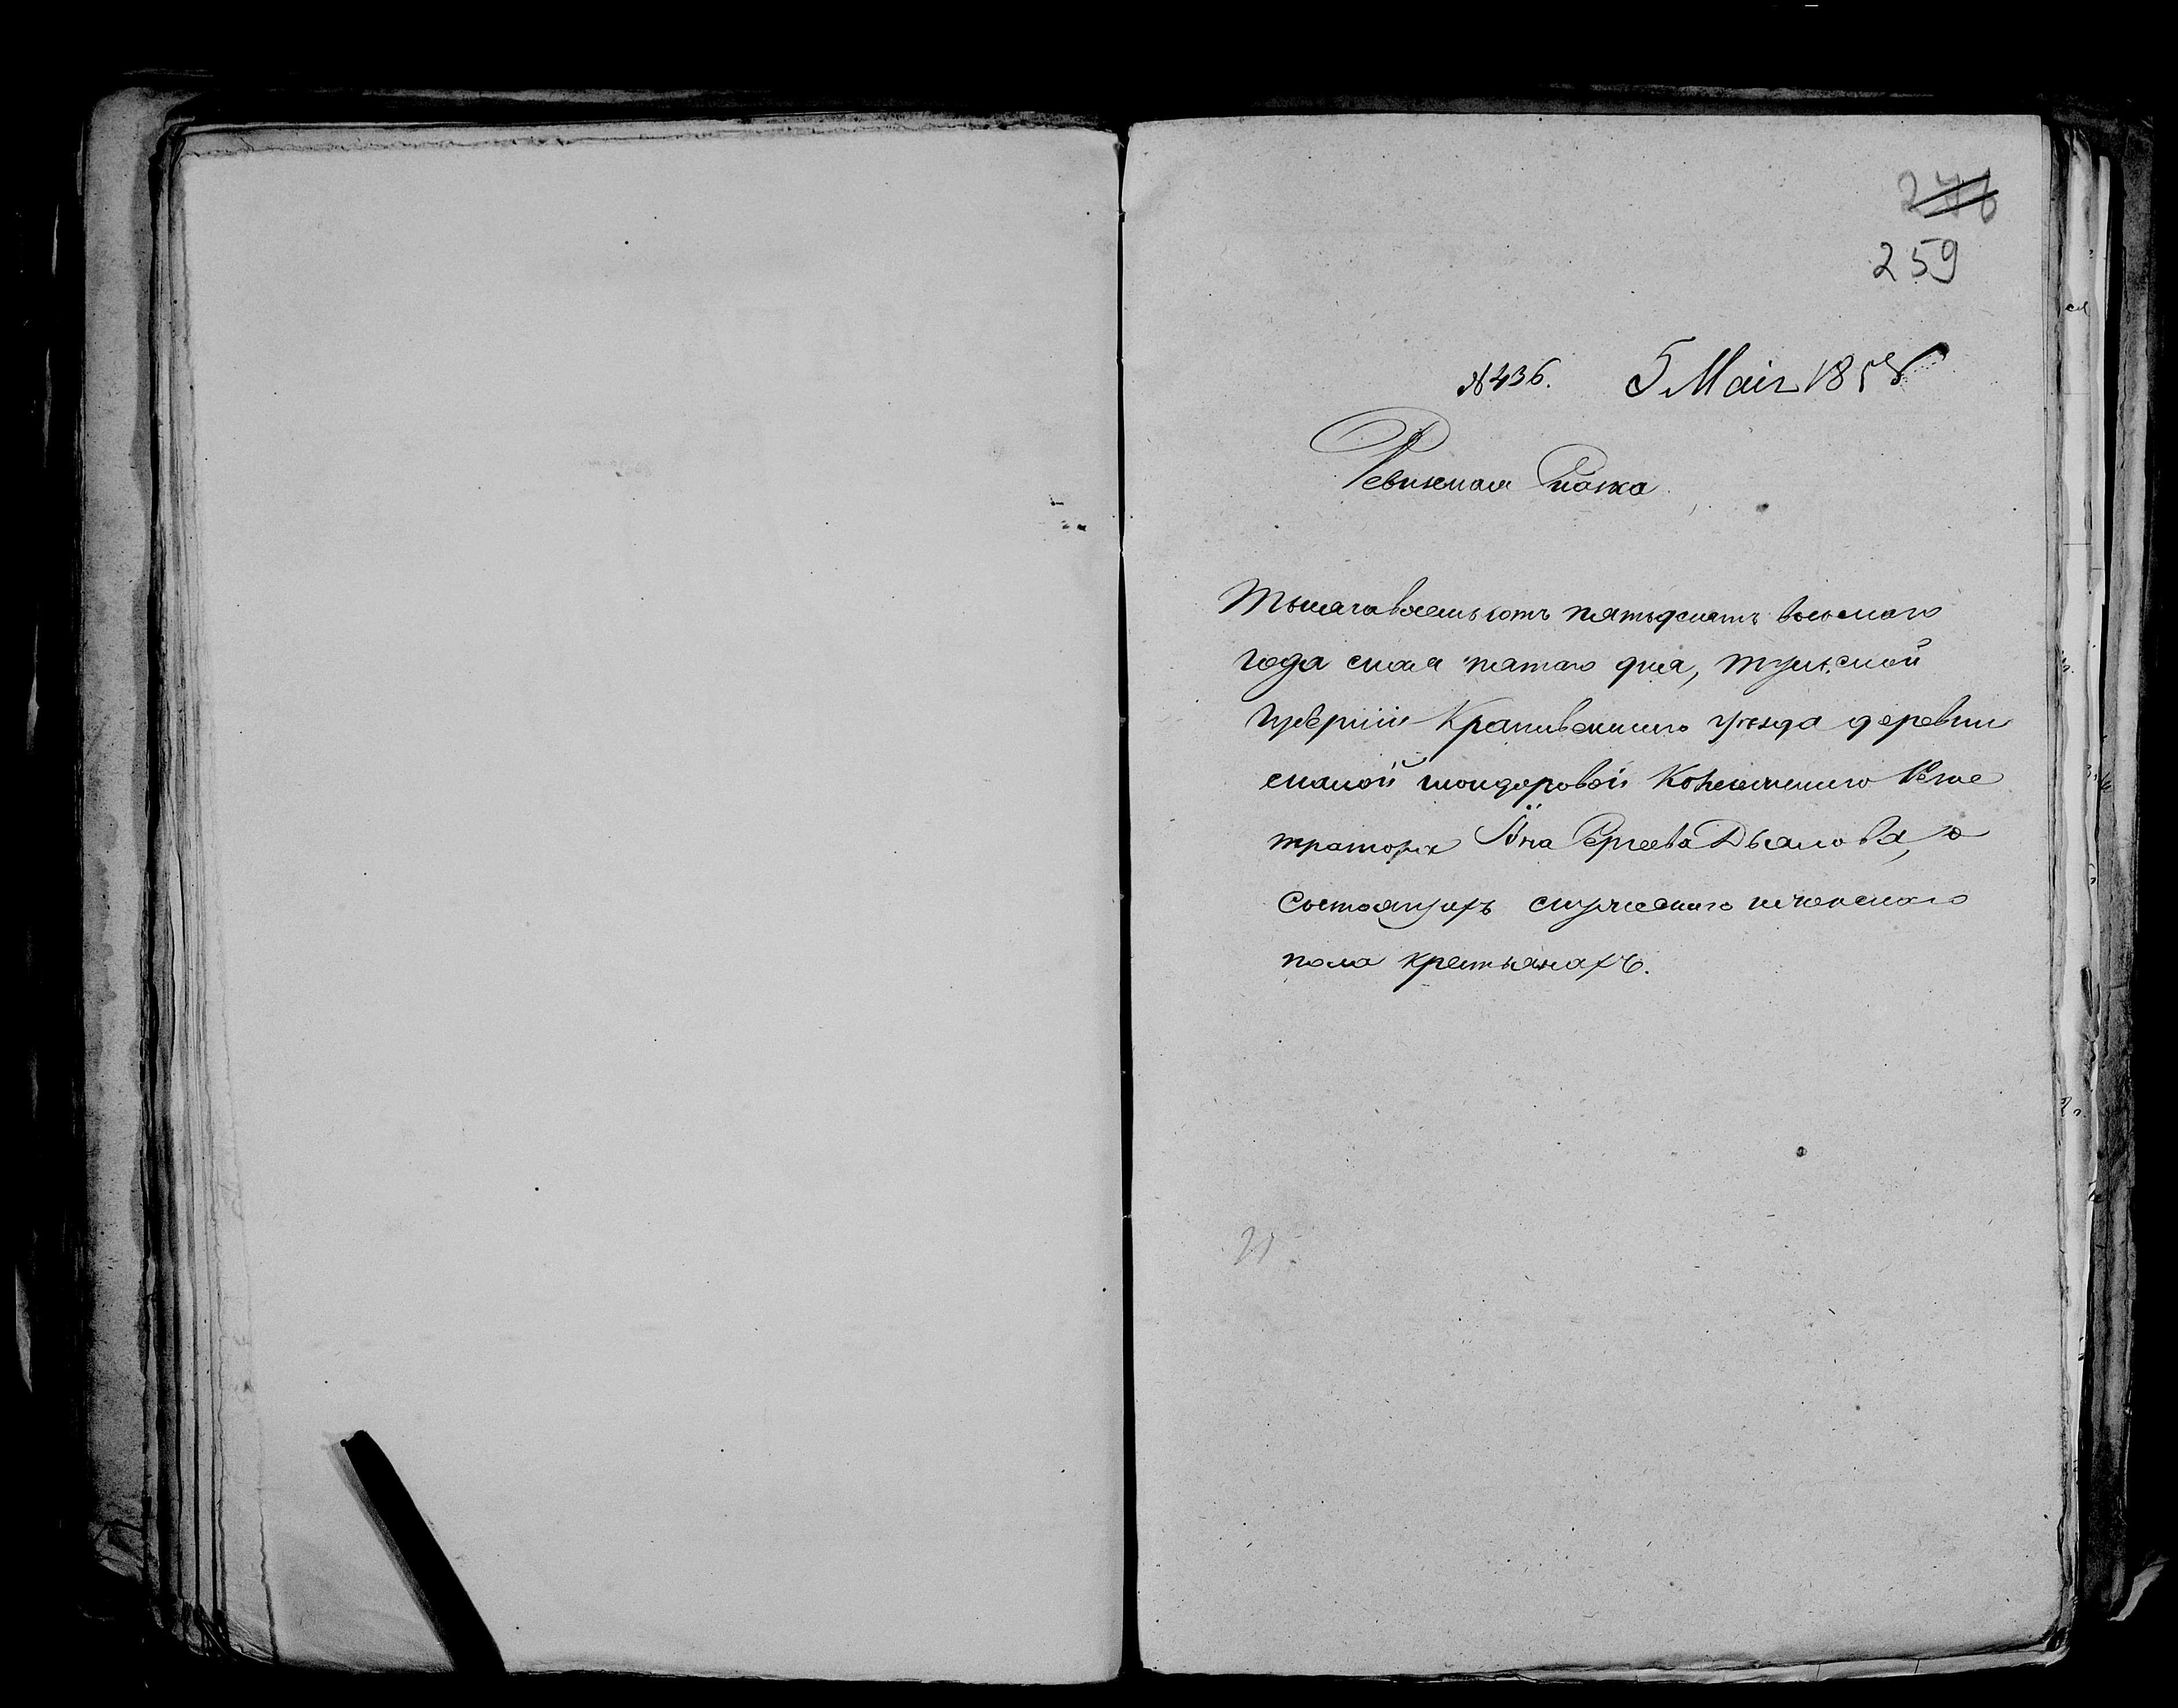 246
259
№436. 5 Маія 1858
Ревизская Сказка.
Тысяча восемьсотъ пятьдесятъ восьмаго
года мая пятаго дня, Тульской
Губерніи Крапивенскаго уѣзда деревни
малой Кондоровой Колежскаго Реги
тратора Сергеева Дьякова, о
состоящихъ мужескаго и женскаго
пола крестьянахъ.